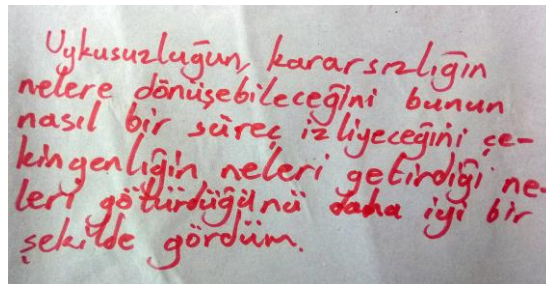 Uykusuzluğun, kararsızlığın
nelere dönüşebileceğini bunun
nasıl bir süreç izliyeceğini çe-
kingenliğin neleri getirdiği ne-
leri götürdüğünü daha iyi bir
şekilde gördüm.